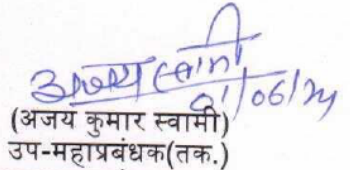 अजय स्वामी
01/06/24
(अजय कुमार स्वामी)
उप-महाप्रबंधक(तक.)